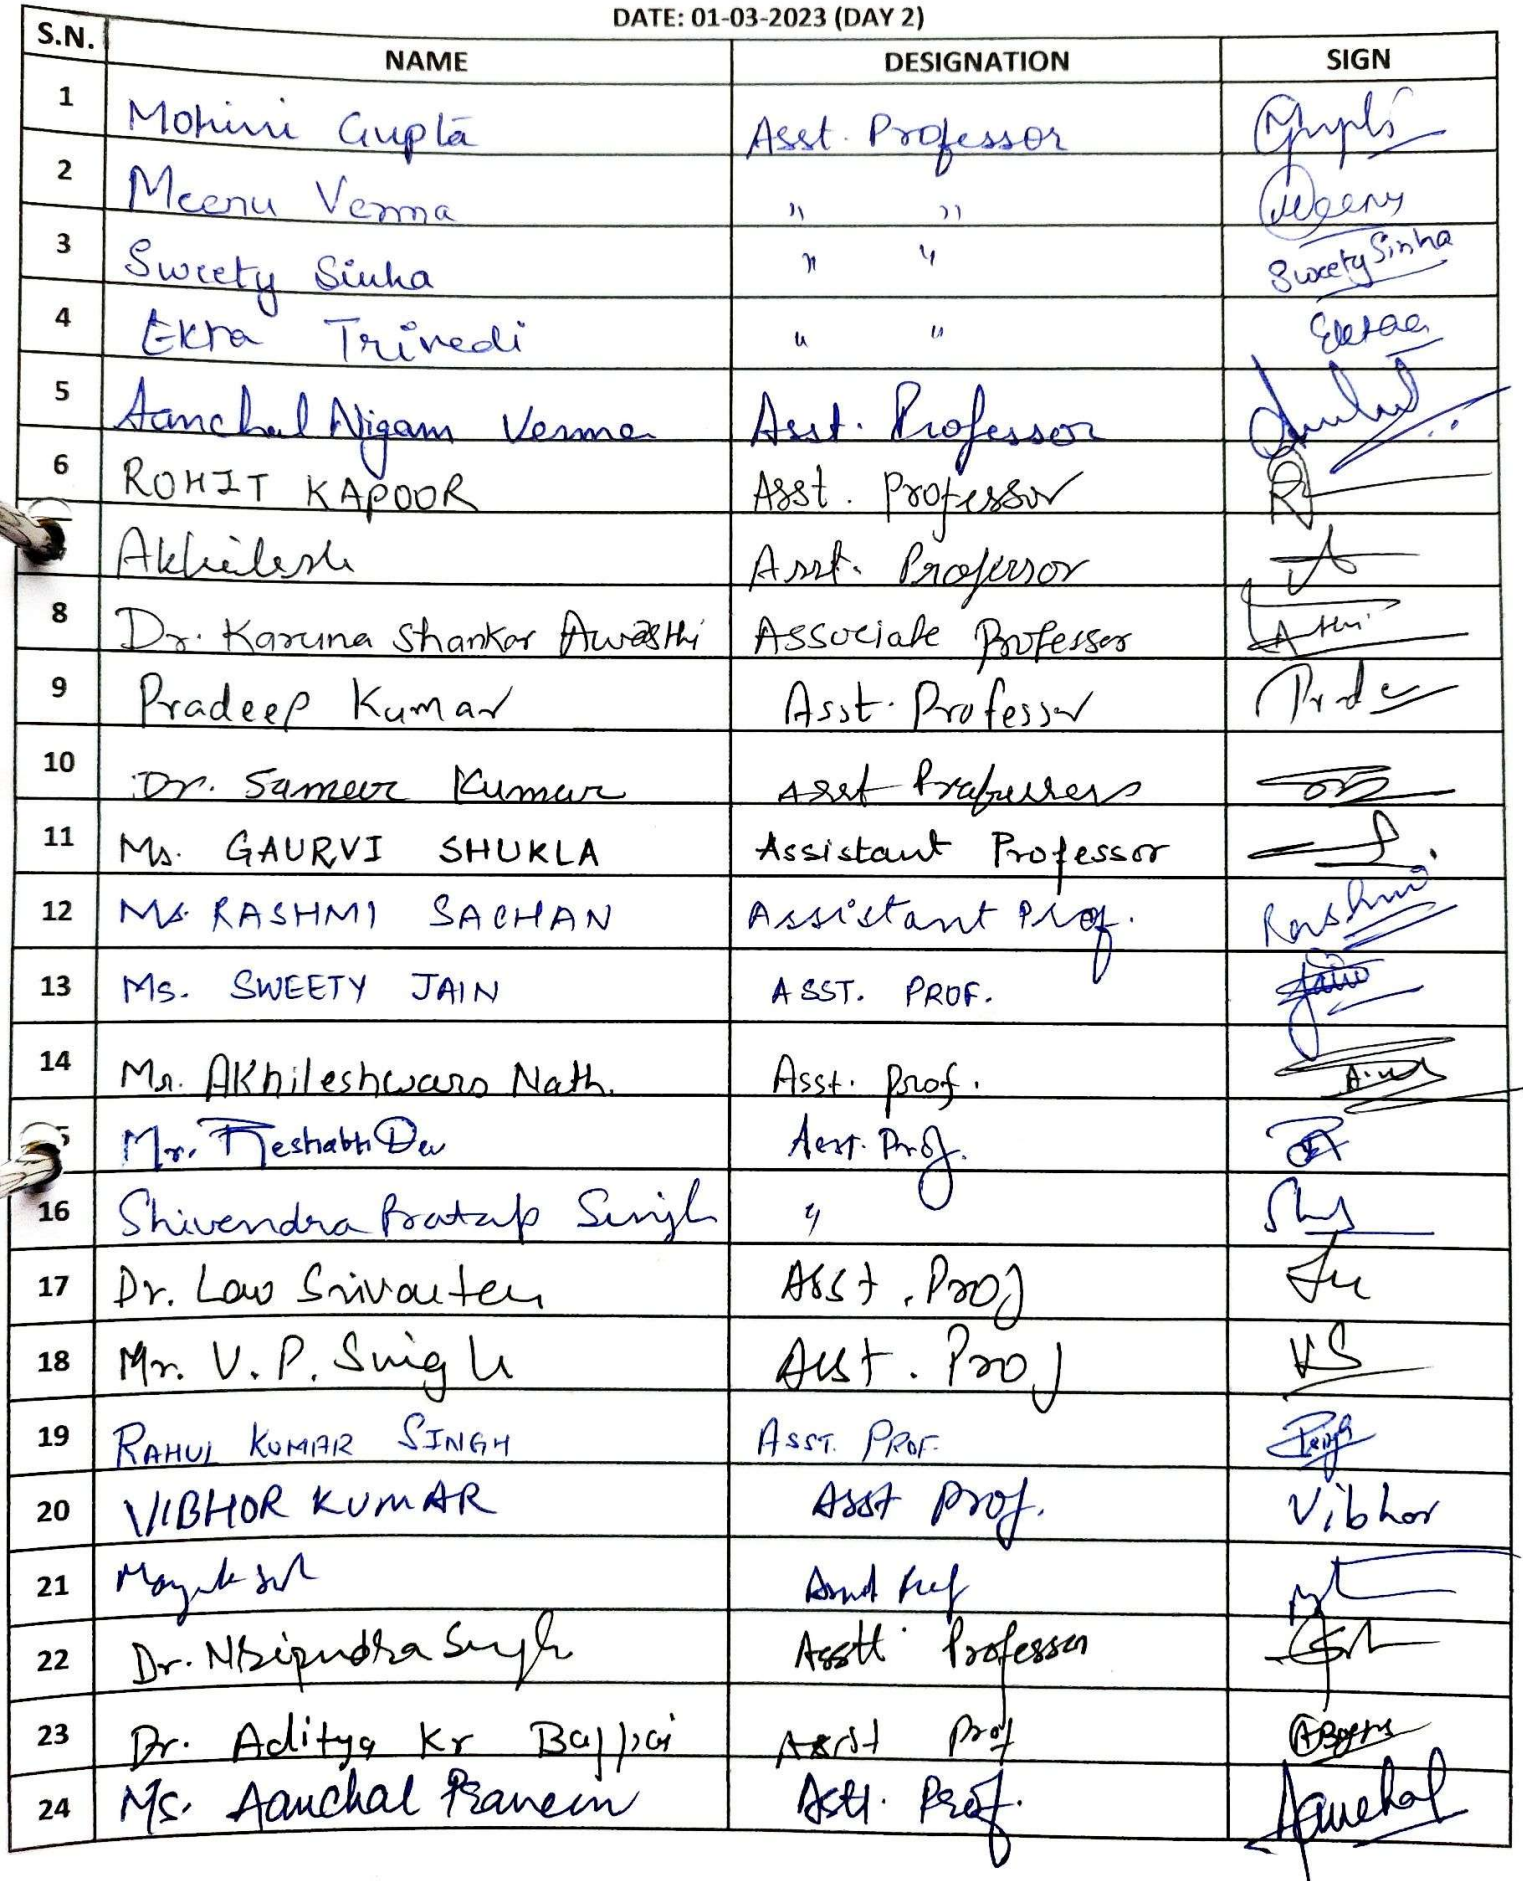 DATE: 01-03-2023 (DAY 2)
S.N. NAME DESIGNATION SIGN
1 Mohini Gupta Asst. Professor Gupta
2 Meenu Verma " " Meenu
3 Sweety Sinha " " Sweety Sinha
4 Ekta Trivedi " " Ektaa
5 Aanchal Nigam Verma Asst. Professor
6 ROHIT KAPOOR Asst. Professor
Akhilesh Asst. Professor
8 Dr. Karuna Shankar Awasthi Associate Professor
9 Pradeep Kumar Asst. Professor
10 Dr. Sameer Kumar Asst
11 Ms. GAURVI SHUKLA Assistant Professor
12 Ms. RASHMI SACHAN Assistant Prof. Rashmi
13 Ms. SWEETY JAIN ASST. PROF. Jain
14 Mr. Akhileshwara Nath. Asst. Prof.
5 Mr. Asst. Prof.
16 Shivendra Pratap Singh "
17 Dr. Lav Srivastava Asst. Prof
18 Mr. V.P. Singh Asst. Prof VS
19 RAHUL KUMAR SINGH ASST. PROF.
20 VIBHOR KUMAR Asst Prof. Vibhor
21
22 Dr. Singh Asstt. Professor
23 Dr. Aditya Kr Bajpai Asst Prof
24 Ms. Aanchal Praveen Astt. Prof. Aanchal